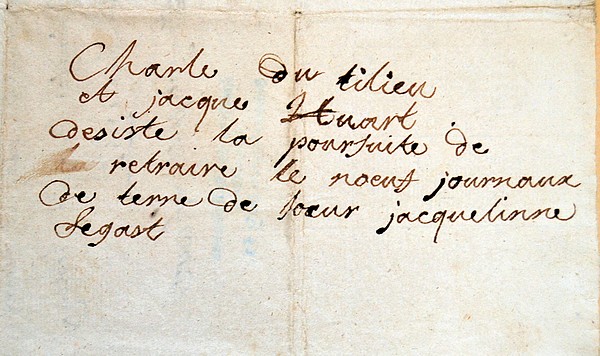 Charle du tilieu
et jacque Huart
desiste la poursuite de
la retraire le noeuf journaux
de terre de soeur jacquelinne
segast